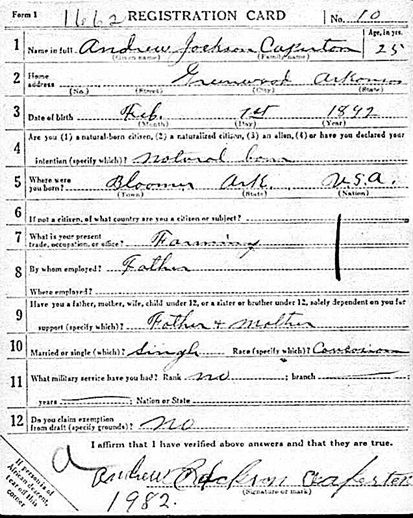 Form 1 1662 REGISTRATION CARD No. 10
1 Name in full Andrew Jackson Caperton Age, in yrs. 25
(Given name) (Family name)
2 Home address Greenwood Arkansas
(No.) (Street) (City) (State)
3 Date of birth Feb. 1st 1892
(Month) (Day) (Year)
Are you (1) a natural-born citizen, (2) a naturalized citizen, (3) an alien, (4) or have you declared your
4 intention (specify which)? Natural born
5 Where were you born? Bloomer Ark. U.S.A.
(Town) (State) (Nation)
6 If not a citizen, of what country are you a citizen or subject?
7 What is your present trade, occupation, or office? Farming
8 By whom employed? Father
Where employed?
Have you a father, mother, wife, child under 12, or a sister or brother under 12, solely dependent on you for
9 support (specify which)? Father + mother
10 Married or single (which)? Single Race (specify which)? Caucasian
11 What military service have you had? Rank no ; branch
years ; Nation or State
12 Do you claim exemption from draft (specify grounds)? No
I affirm that I have verified above answers and that they are true.
Andrew Jackson
(Signature or mark)
1982.
If person is of
African descent,
tear off this
corner